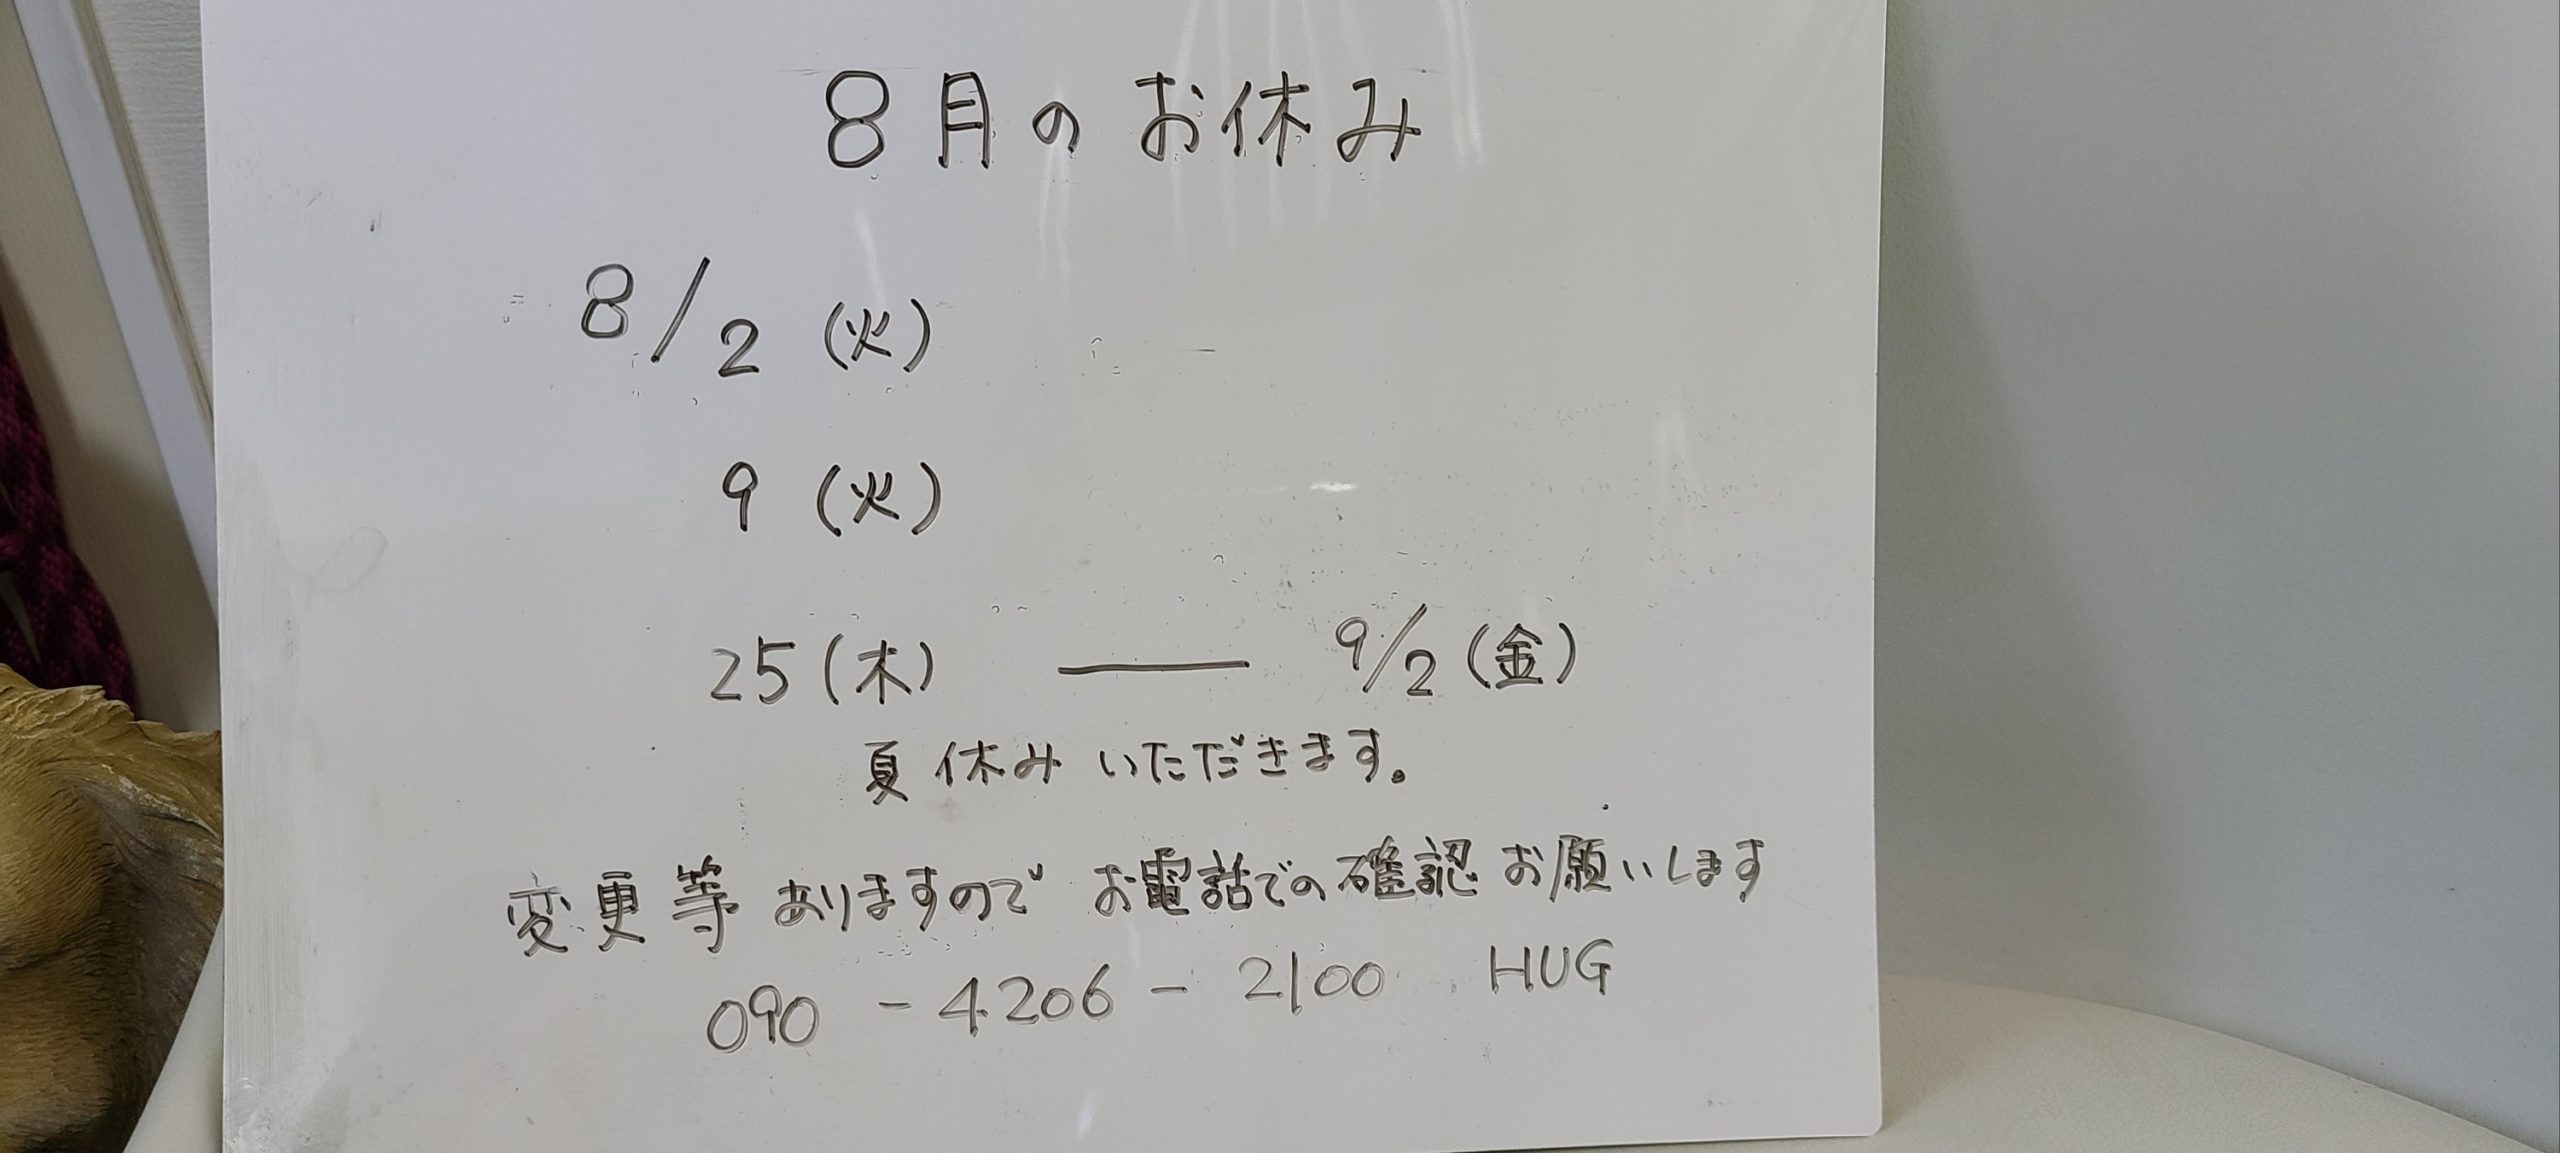 8月のお休み
8/2(火)
9(火)
25(木) — 9/2(金)
夏休みいただきます。
変更等ありますのでお電話での確認お願いします
090-4206-2100 HUG